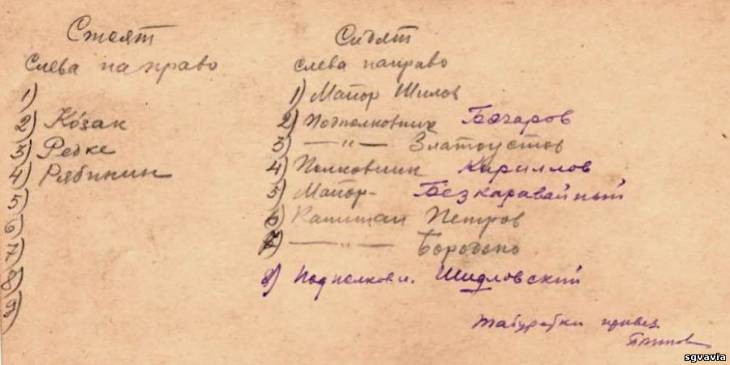 Стоят
слева на право
1)
2) Козак
3) Редке
4) Рябинин
5)
6
7
8
9
Сидят
слева направо
1) Майор Шилов
2) Подполковник Бочаров
3) —"— Златоустов
4) Полковник Кириллов
5) Майор- Безкаравайный
6) Капитан Петров
7) —"—
8) Подполковн. Шидловский
Табуретки
sgvavia